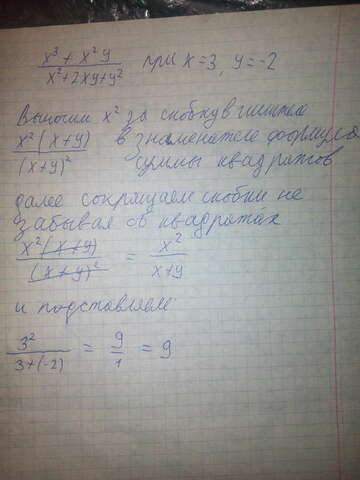 x³ + x²y / x²+2xy+y² при x=3, y=-2
Выносим x² за скобку в числителе
x²(x+y) / (x+y)² в знаменателе формула
суммы квадратов
далее сокращаем скобки не
забывая об квадратах
x²(x+y) / (x+y)² = x² / x+y
и подставляем
3² / 3+(-2) = 9/1 = 9